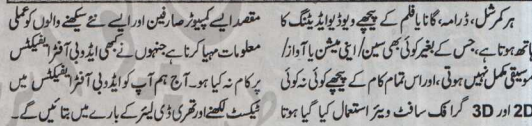 ہر کمرشل، ڈرامہ، گانا یا فلم کے پیچھے ویڈیو ایڈیٹنگ کا
ہاتھ ہوتا ہے، جس کے بغیر کوئی بھی سین/اینی میشن یا آواز/
موسیقی مکمل نہیں ہوتی، اور اس تمام کام کے پیچھے کوئی نہ کوئی
2D اور 3D گرافک سافٹ ویئر استعمال کیا گیا ہوتا
مقصد ایسے کمپیوٹر صارفین اور ایسے نئے سیکھنے والوں کو عملی
معلومات مہیا کرنا ہے جنہوں نے بھی ایڈوبی آفٹر ایفیکٹس
پر کام نہ کیا ہو۔ آج ہم آپ کو ایڈوبی آفٹر ایفیکٹس میں
ٹیکسٹ لکھنے اور تھری ڈی لیئر کے بارے میں بتائیں گے۔